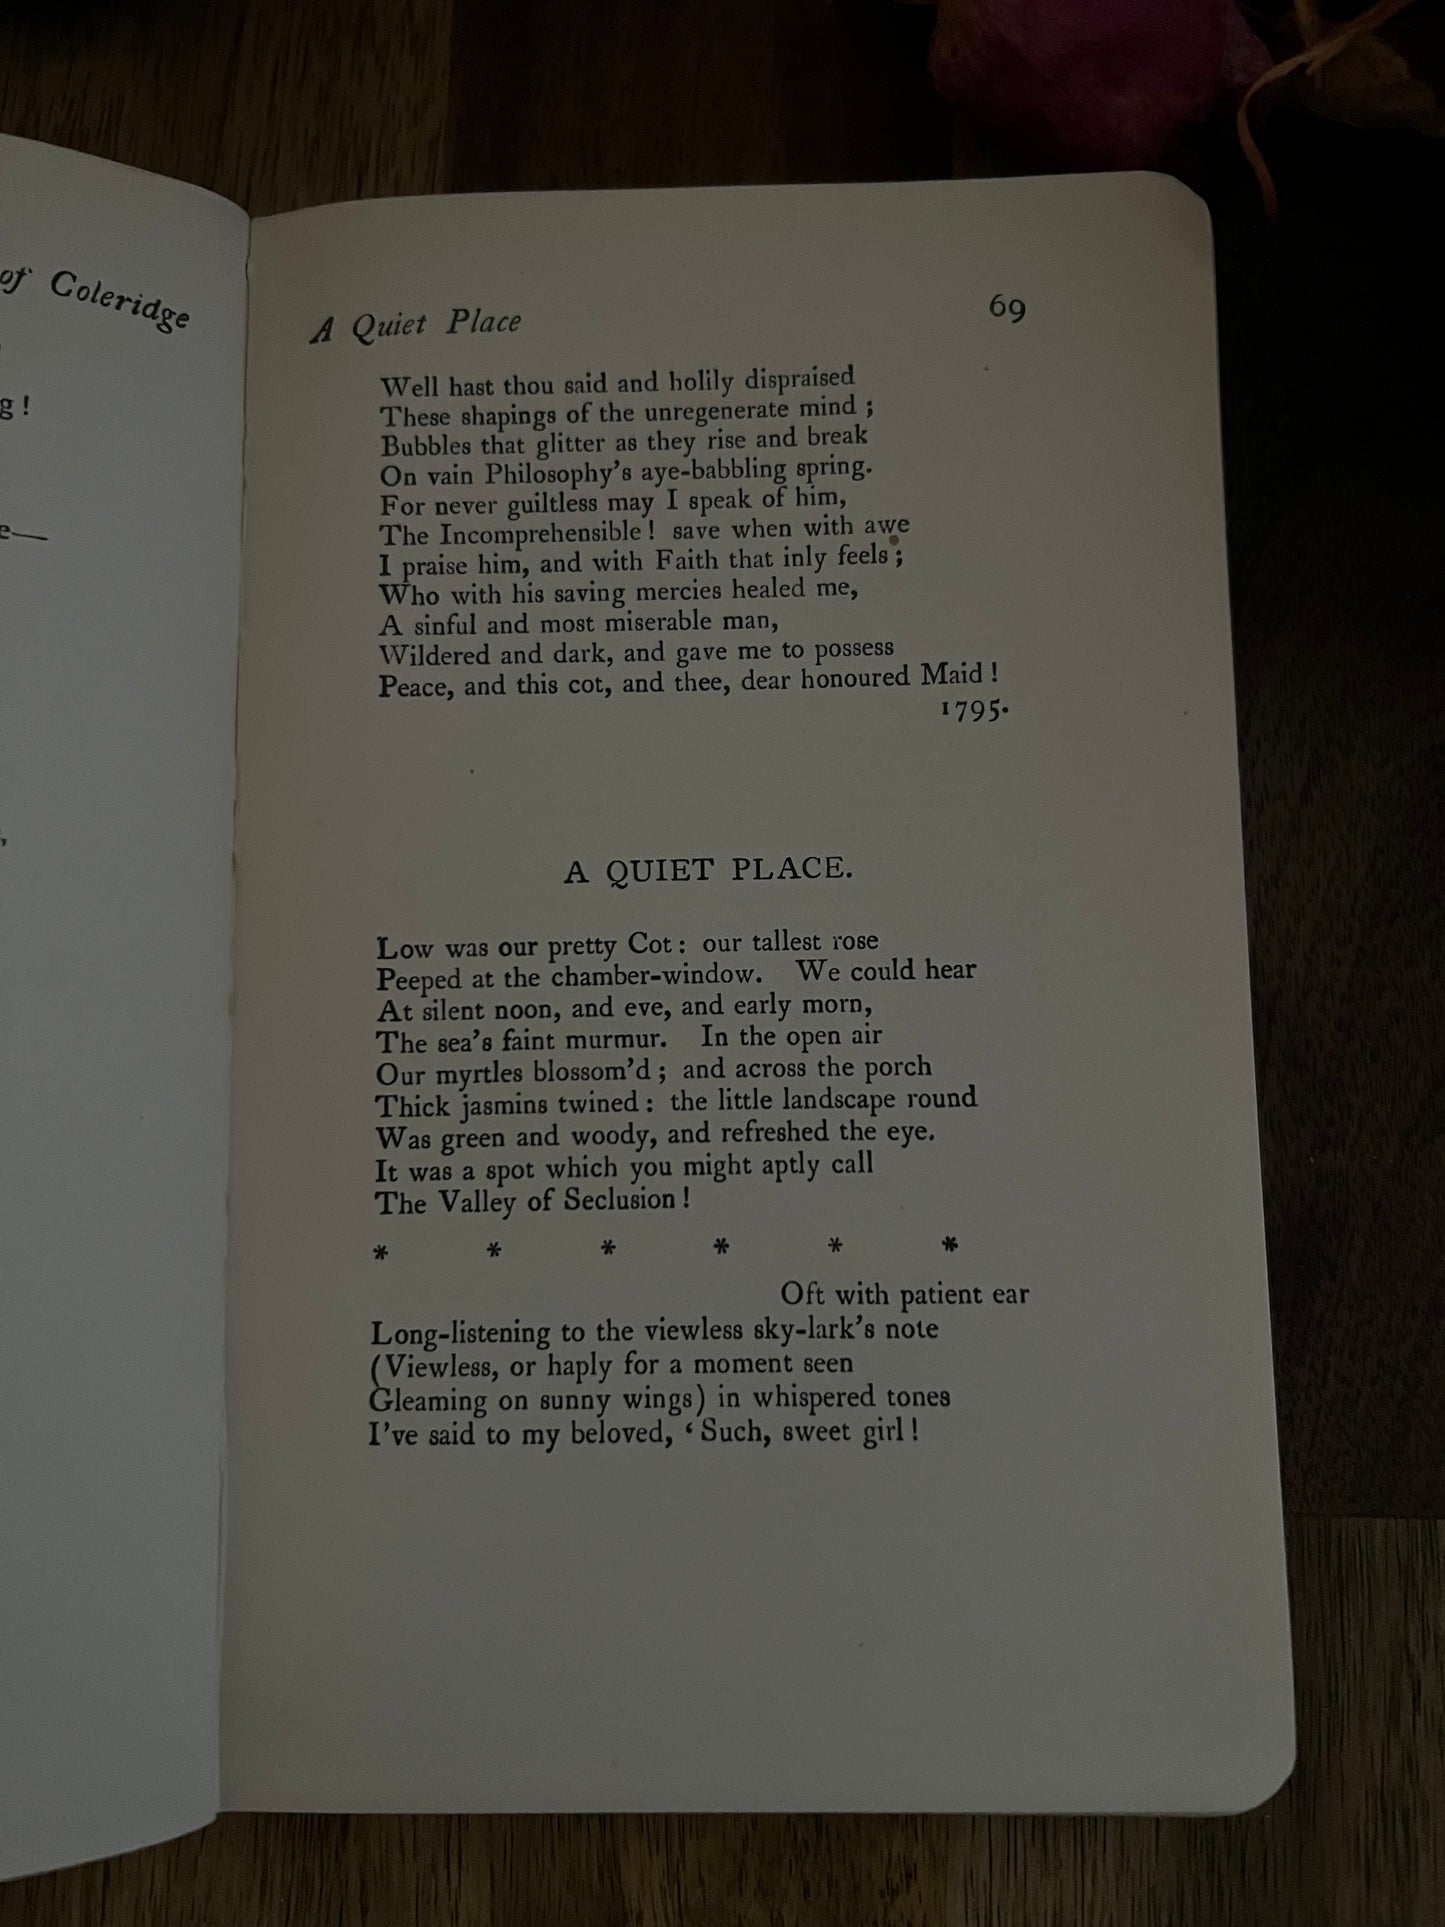 of Coleridge
g!
e—
,
A Quiet Place 69
Well hast thou said and holily dispraised
These shapings of the unregenerate mind ;
Bubbles that glitter as they rise and break
On vain Philosophy's aye-babbling spring.
For never guiltless may I speak of him,
The Incomprehensible! save when with awe
I praise him, and with Faith that inly feels ;
Who with his saving mercies healed me,
A sinful and most miserable man,
Wildered and dark, and gave me to possess
Peace, and this cot, and thee, dear honoured Maid!
1795.
A QUIET PLACE.
Low was our pretty Cot: our tallest rose
Peeped at the chamber-window. We could hear
At silent noon, and eve, and early morn,
The sea's faint murmur. In the open air
Our myrtles blossom'd ; and across the porch
Thick jasmins twined: the little landscape round
Was green and woody, and refreshed the eye.
It was a spot which you might aptly call
The Valley of Seclusion!
* * * * * *
Oft with patient ear
Long-listening to the viewless sky-lark's note
(Viewless, or haply for a moment seen
Gleaming on sunny wings) in whispered tones
I've said to my beloved, 'Such, sweet girl!